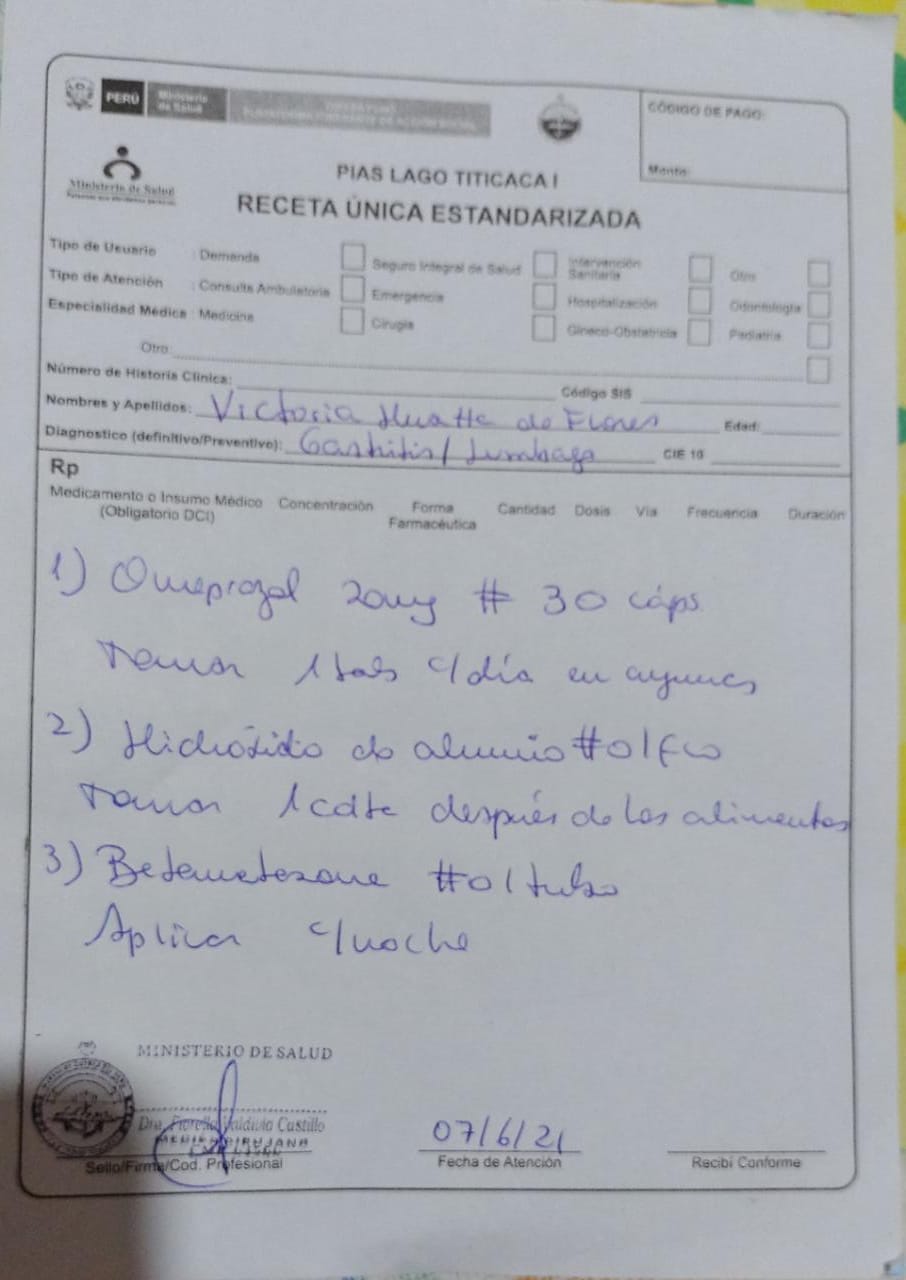 PERÚ Ministerio de Salud
CÓDIGO DE PAGO:
Monto:
Ministerio de Salud
PIAS LAGO TITICACA I
RECETA ÚNICA ESTANDARIZADA
Tipo de Usuario : Demanda Seguro Integral de Salud Intervención Sanitaria Otro
Tipo de Atención : Consulta Ambulatoria Emergencia Hospitalización Odontología
Especialidad Médica : Medicina Cirugía Gineco-Obstetricia Pediatría
Otro
Número de Historia Clínica: Código SIS
Nombres y Apellidos: Victoria Huatta de Flores Edad:
Diagnostico (definitivo/Preventivo): Gastritis / Lumbago CIE 10
Rp
Medicamento o Insumo Médico (Obligatorio DCI) Concentración Forma Farmacéutica Cantidad Dosis Vía Frecuencia Duración
1) Omeprazol 20mg # 30 cáps
Tomar 1 tab c/día en ayunas
2) Hidróxido de aluminio #01 fco
Tomar 1 cdta después de los alimentos
3) Betametasona #01 tubo
Aplicar c/noche
MINISTERIO DE SALUD
Dra. Fiorella Valdivia Castillo
MEDICO CIRUJANA
07/6/21
Sello/Firma/Cod. Profesional Fecha de Atención Recibí Conforme